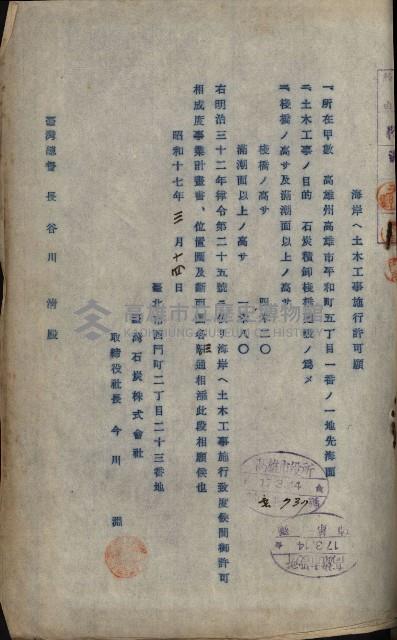 海岸ヘ土木工事施行許可願
一、所在甲數 高雄州高雄市平和町五丁目一番ノ一地先海面
二、土木工事ノ目的 石炭積卸棧橋建設ノ爲メ
三、棧橋ノ高サ及滿潮面以上ノ高サ
棧橋ノ高サ
滿潮面以上ノ高サ
右明治三十二年律令第二十五號ニ依リ海岸ヘ土木工事施行致度候間御許可
相成度事業計畫書、位置圖及斷面圖各三通相添此段相願候也
昭和十七年三月十四日
臺北市西門町二丁目二十三番地
臺灣石炭株式會社
取締役社長 今川淵
臺灣總督 長谷川清殿
高雄市役所
17.3.14
高雄市役所
17.3.14
高雄市立歷史博物館
MUSEUM OF HISTORY